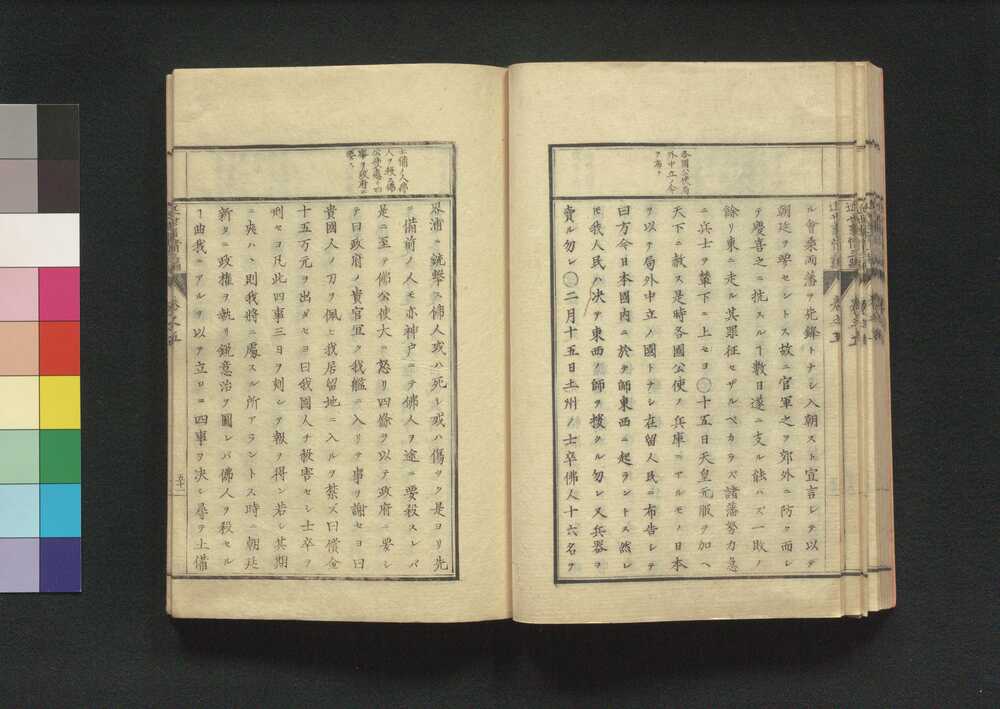 各國公使局
外中立ノ令
ヲ布ク
ル會桒兩藩ヲ先鋒トナシ入朝スト宣言シテ以テ
朝廷ヲ犯セントス故ニ官軍之ヲ郊外ニ防ク而シ
テ慶喜之ニ抗スルヿ數日遂ニ支ル能ハズ一敗ノ
餘リ東ニ走ル其罪征セザルベカラズ諸藩勢力急
ニ兵士ヲ輦下ニ上セヨ○十五日天皇元服ヲ加ヘ
天下ニ赦ス是時各國公使ノ兵庫ニアルモノ日本
ヲ以テ局外中立ノ國トナシ在留人民ニ布告シテ
曰方今日本國内ニ於テ師東西ニ起ラントス然レ
𪜈我人民ハ決テ東西ノ師ヲ援クル勿レ又兵器ヲ
賣ル勿レ○二月十五日土州ノ士卒佛人十六名ヲ
土備ノ人佛
人ヲ殺シ佛
公使處ヲ四
事ヲ政府ニ
要ス
界浦ニ銃擊ス佛人或ハ死シ或ハ傷ツク是ヨリ先
ニ備前ノ人モ亦神戸ニテ佛人ヲ途ニ要殺スレバ
是ニ至テ佛公使大ニ怒リ四條ヲ以テ政府ニ要シ
テ曰政府ノ貴官宜ク我艦ニ入リテ事ヲ謝セヨ曰
貴國人ノ刀ヲ佩ヒ我居留地ニ入ルヲ禁ズ曰償金
十五万元ヲ出ダセヨ曰我國人ヲ殺害セシ士卒ヲ
刑セヨ凡此四事三日ヲ刻シテ報ヲ得ン若シ其期
ニ爽ハヽ則我將ニ處スル所アラントス時ニ朝廷
新タニ政權ヲ執リ鋭意治ヲ圖レバ佛人ヲ殺セル
ヿ曲我ニアルヲ以テ立ロニ四事ヲ決シ尋テ土備